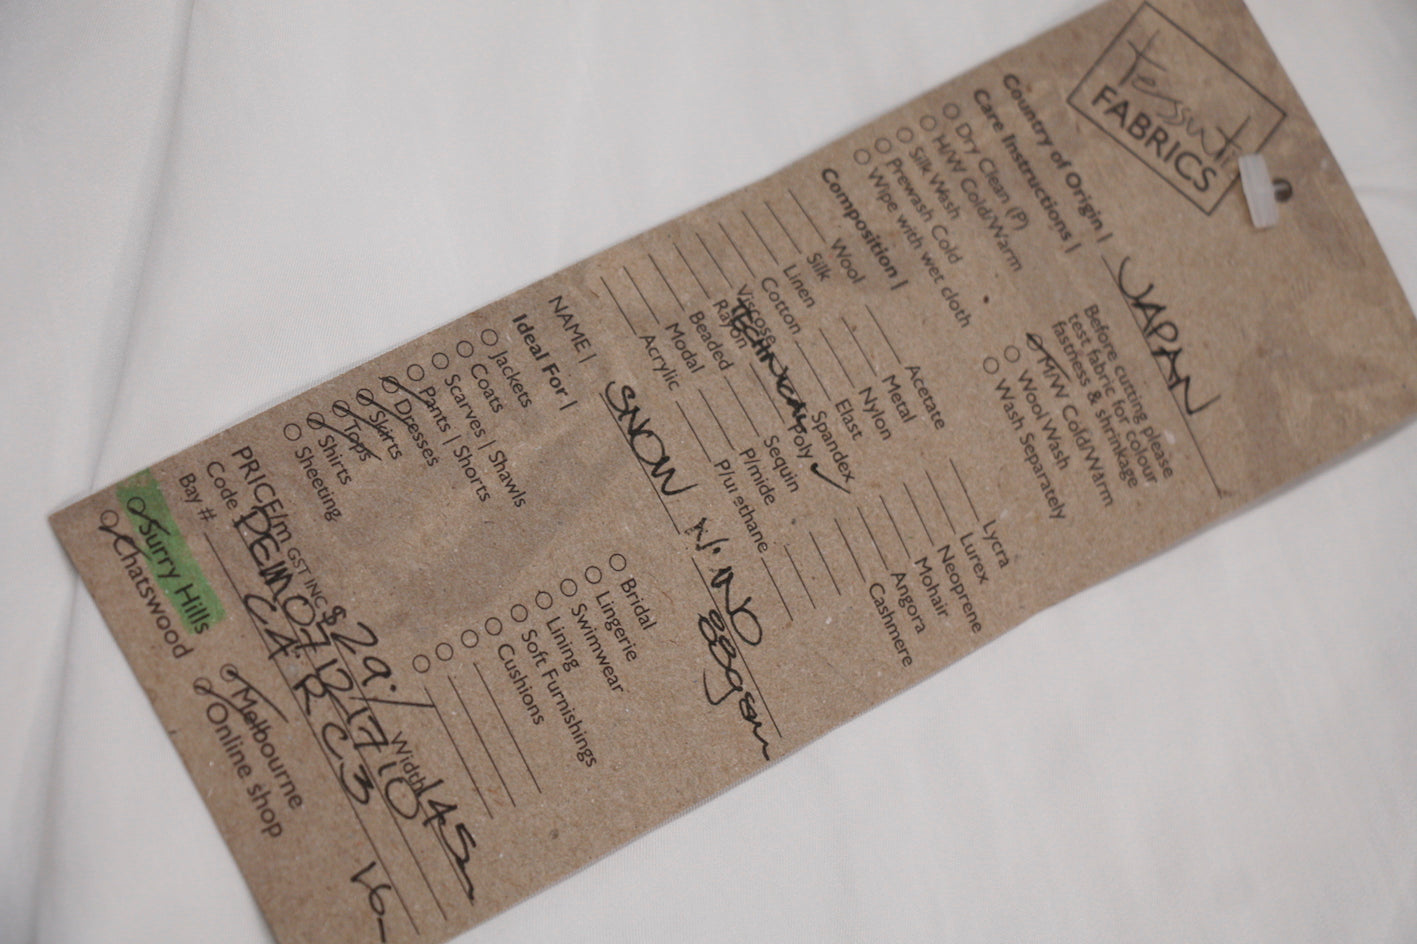 Tessuti
FABRICS
Country of Origin | JAPAN
Care Instructions |
Dry Clean (P)
H/W Cold/Warm
Silk Wash
Prewash Cold
Wipe with wet cloth
Before cutting please
test fabric for colour
fastness & shrinkage
M/W Cold/Warm
Wool Wash
Wash Separately
Composition |
Wool
Silk
Linen
Cotton
Viscose
Rayon
Beaded
Modal
Acrylic
Acetate
Metal
Nylon
Elast
Spandex
TECHNICAL Poly ✓
Sequin
P/mide
P/urethane
Lycra
Lurex
Neoprene
Mohair
Angora
Cashmere
NAME | SNOW
88gsm
Ideal For |
Jackets
Coats
Scarves | Shawls
Pants | Shorts
Dresses
Skirts
Tops
Shirts
Sheeting
Bridal
Lingerie
Swimwear
Lining
Soft Furnishings
Cushions
PRICE/m GST INC $29./ Width 145
Code
Bay #
Surry Hills
Chatswood
Melbourne
Online shop